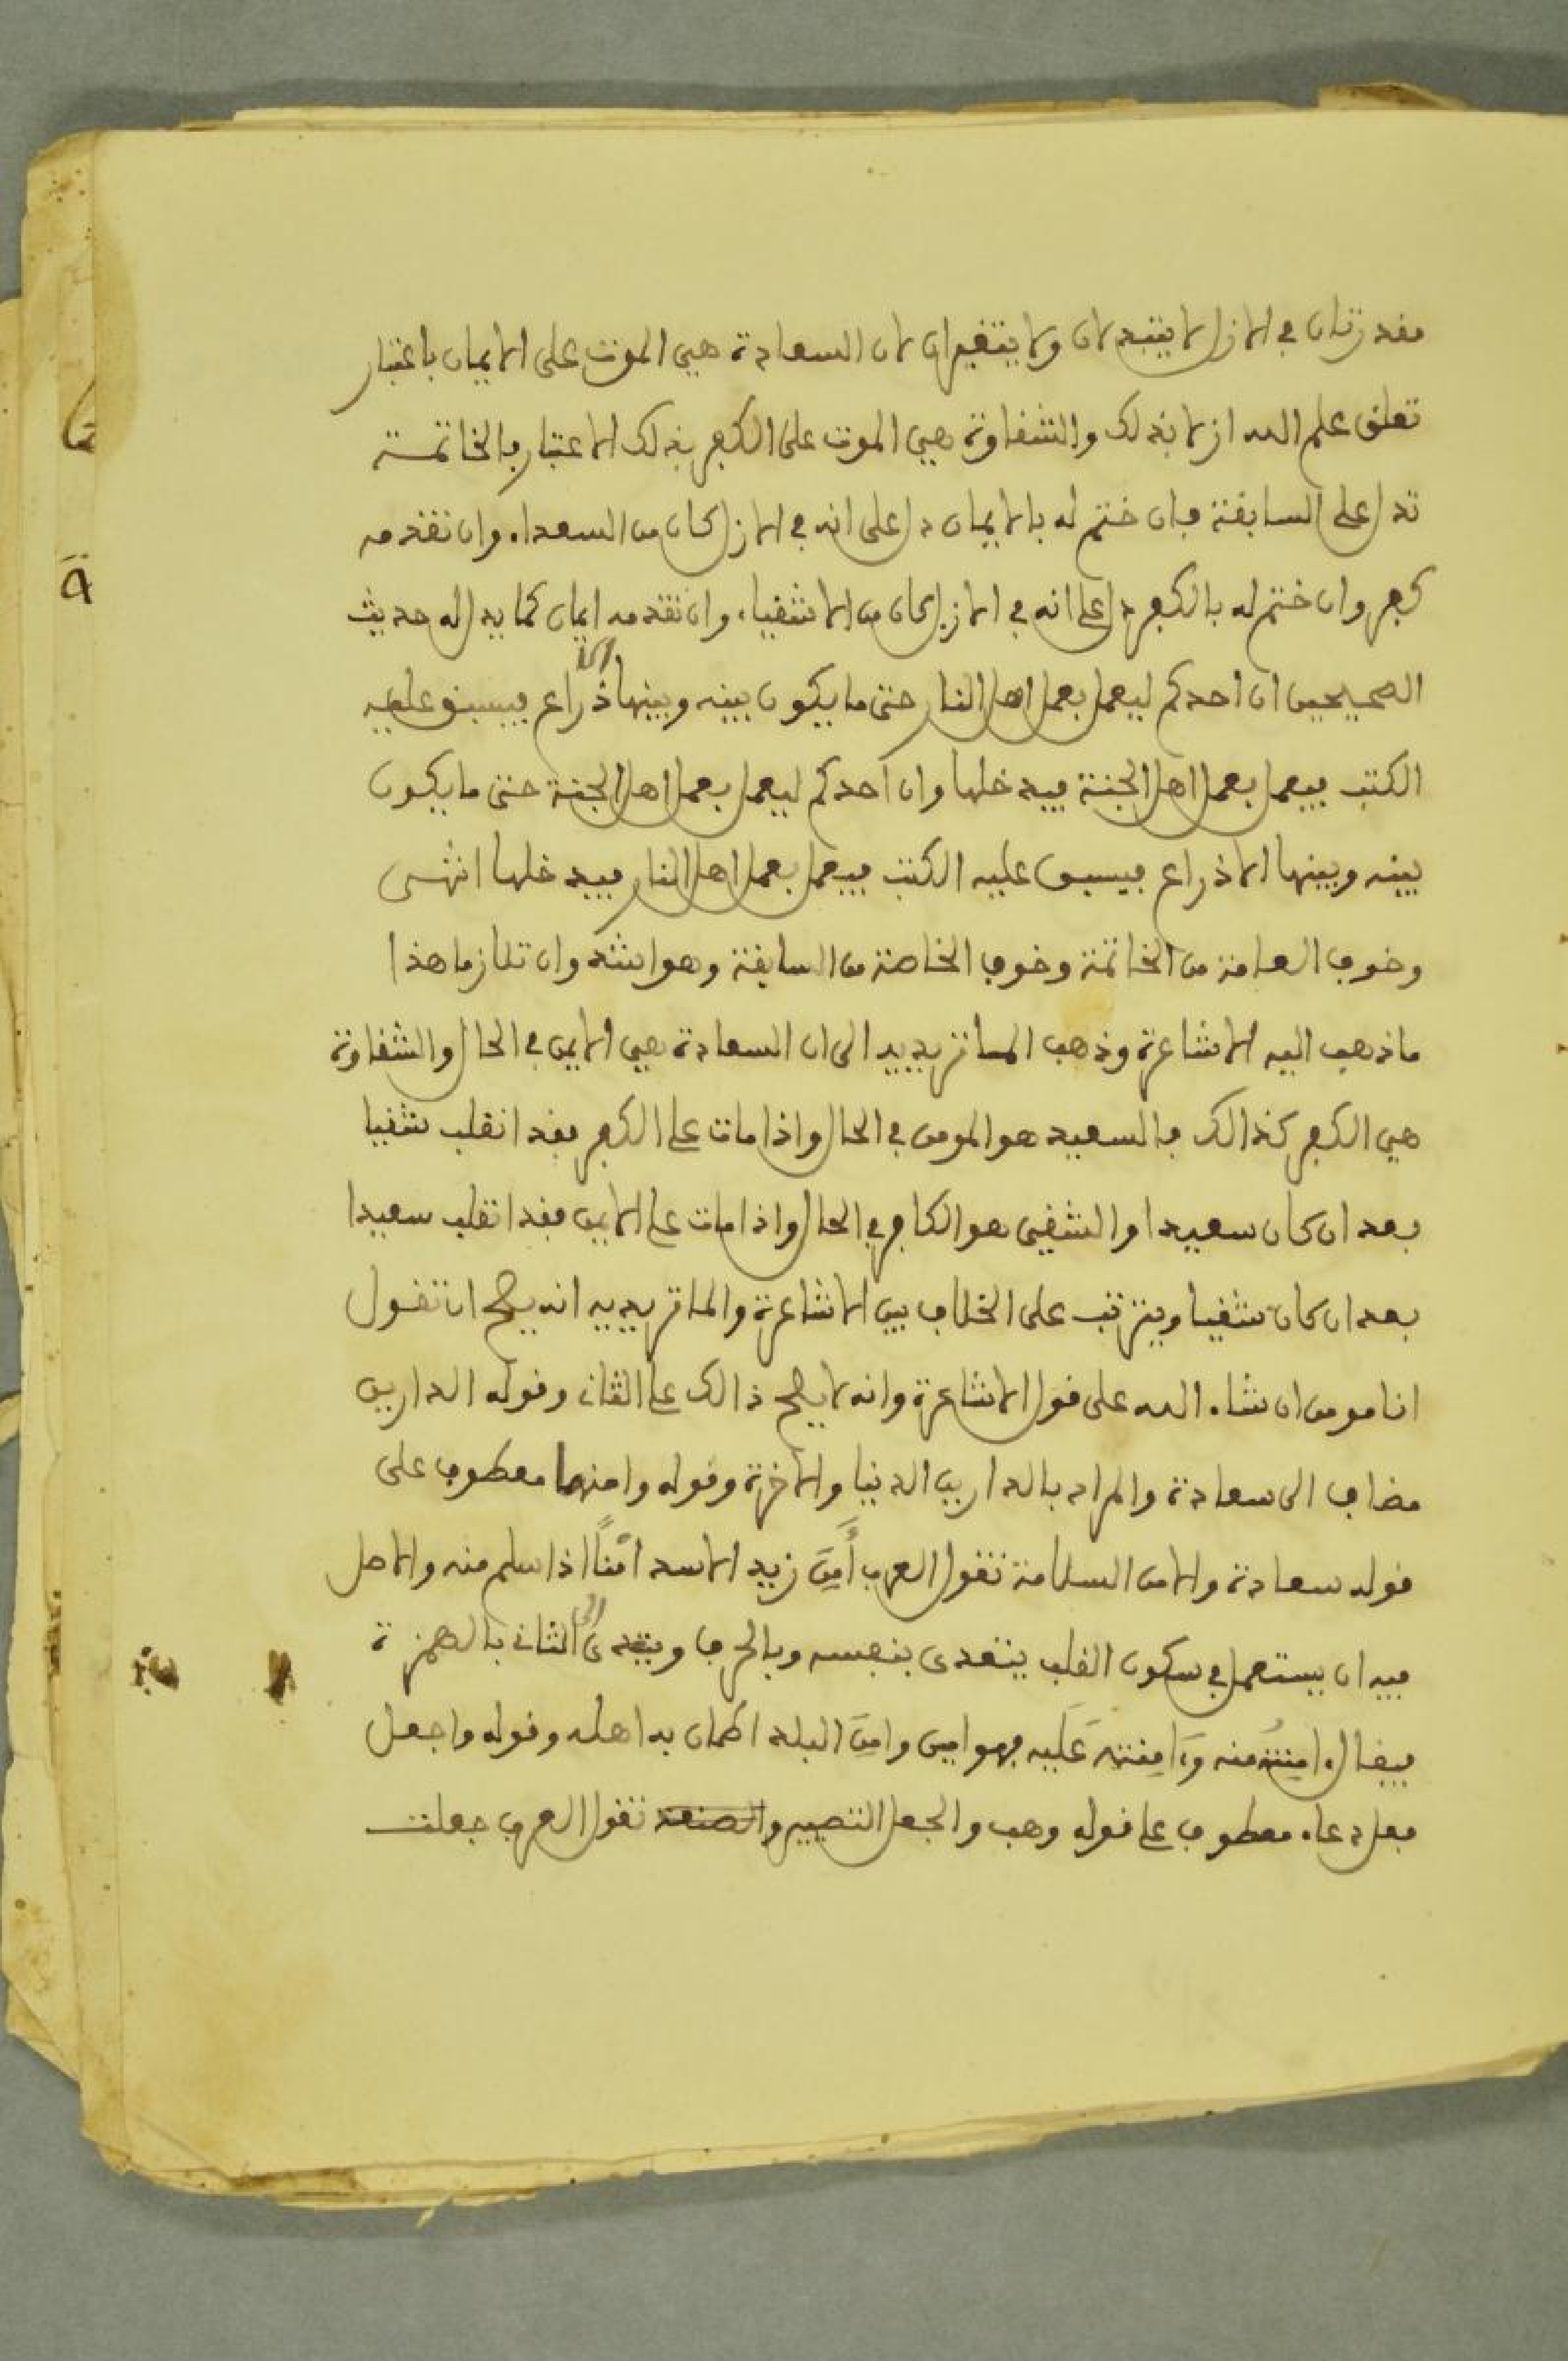 مقدرتان في الازل لا يتبدلان ولا يتغيران لان السعادة هي الموت على الايمان باعتبار
تعلق علم الله ازلا بذلك والشقاوة هي الموت على الكفر بذلك الاعتبار فالخاتمة
تدل على السابقة فان ختم له بالايمان دل على انه في الازل كان من السعداء وان تقدمه
كفر وان ختم له بالكفر دل على انه في الازل كان من الاشقياء وان تقدمه ايمان كما يدل له حديث
الصحيحين ان احدكم ليعمل بعمل اهل النار حتى ما يكون بينه وبينها الا ذراع فيسبق عليه
الكتب فيعمل بعمل اهل الجنة فيدخلها وان احدكم ليعمل بعمل اهل الجنة حتى ما يكون
بينه وبينها الا ذراع فيسبق عليه الكتب فيعمل بعمل اهل النار فيدخلها انتهى
وخوف العامة من الخاتمة وخوف الخاصة من السابقة وهو اشد وان تلازما هذا
ما ذهب اليه الاشاعرة وذهب الماتريديه الى ان السعادة هي الايمن في الحال والشقاوة
هي الكفر كذالك فالسعيد هو المومن في الحال واذا مات على الكفر فقد انقلب شقيا
بعد ان كان سعيدا والشقي هو الكافر في الحال واذا مات على الايمن فقد انقلب سعيدا
بعد ان كان شقيا ويترتب على الخلاف بين الاشاعرة والماتريديه انه يصح ان تقول
انا مومن ان شاء الله على قول الاشاعرة وانه لا يصح ذالك على الثاني وقوله الدارين
مضاف الى سعادة والمراد بالدارين الدنيا والاخرة وقوله وامنهما معطوف على
قوله سعادة والامن السلامة تقول العرب أَمِنَ زيد الاسد امْناً اذا سلم منه والاصل
فيه ان يستعمل في سكون القلب يتعدى بنفسه وبالحرف ويتعدى الى الثاني بالهمزة
فيقال ءامنته منه وءامنته عليه فهو امين وامن البلد اطمان به اهله وقوله واجعل
فعل دعاء معطوف على قوله وهب والجعل التصيير والصنعة تقول العرب جعلت